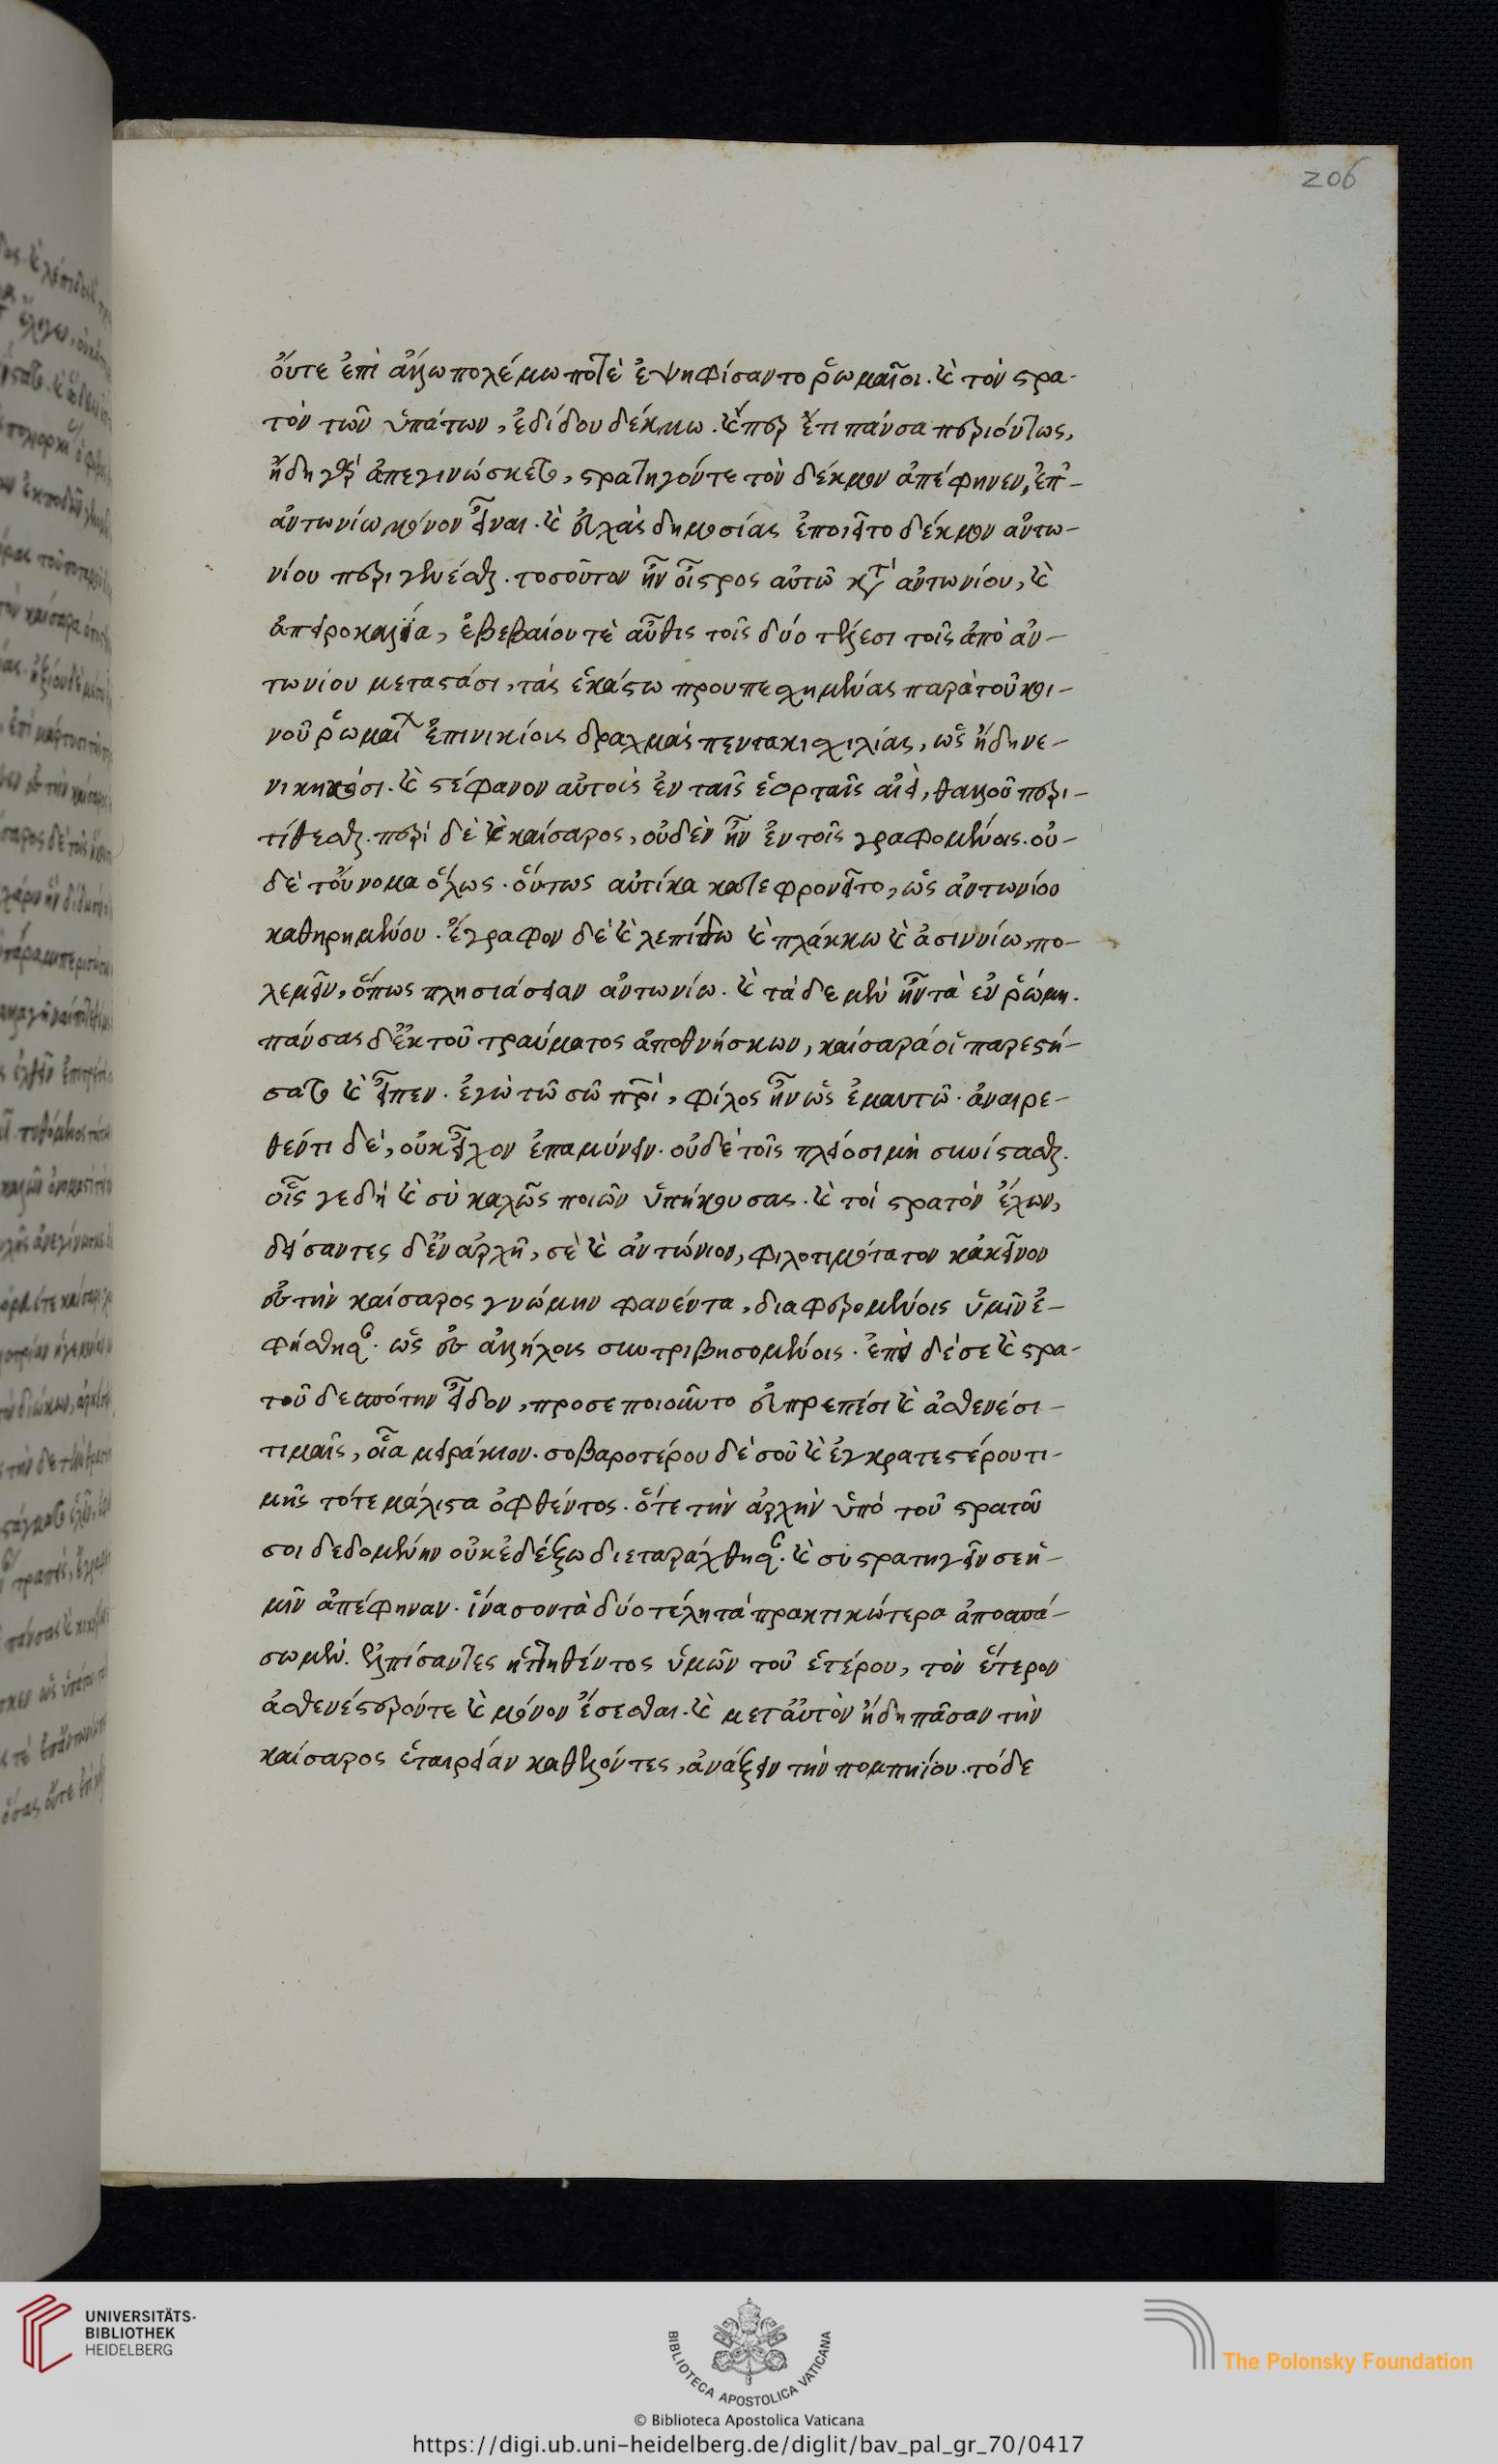 206
οὔτε ἐπὶ ἄλλω πολέμω ποτὲ ἐψηφίσαντο ῥωμαῖοι. καὶ τὸν στρα-
τὸν τῶν ὑπάτων, ἐδίδου δέκμω. καὶ περ ἔτι πάνσα περιόντως,
ἤδη γὰρ ἀπεγινώσκετο, στρατηγόν τε τὸν δέκμον ἀπέφηνεν, ἐπ' -
ἀντωνίω μόνον εἶναι. καὶ εὐχὰς δημοσίας ἐποιεῖτο δέκμον ἀντω-
νίου περιγενέσθαι. τοσοῦτον ἦν οἶστρος αὐτῶ κατὰ ἀντωνίου, καὶ
ἀπειροκαλία, ἐβεβαίου τὲ αὖθις τοῖς δύο τέλεσι τοῖς ἀπὸ ἀν-
τωνίου μεταστάσι, τάς ἑκάστω προυπεσχημένας παρὰ τοῦ κοι-
νοῦ ῥωμαί ἐπινικίοις δραχμὰς πεντακισχιλίας, ὡς ἤδη νε-
νικηκόσι. καὶ στέφανον αὐτοὶς ἐν ταῖς ἑορταῖς αἰεὶ, θαλλοῦ περι-
τίθεσθαι. περὶ δὲ καὶ καίσαρος, οὐδὲν ἦν ἐν τοῖς γραφομένοις. οὐ-
δὲ τοὔνομα ὅλως. οὕτως αὐτίκα κατεφρονεῖτο, ὡς ἀντωνίου
καθηρημένου. ἔγραφον δὲ καὶ λεπίδω καὶ πλάκκω καὶ ἀσιννίω, πο-
λεμεῖν, ὅπως πλησιάσειαν ἀντωνίω. καὶ τάδε μὲν ἦν τὰ ἐν ῥώμη.
πάνσας δ' ἐκ τοῦ τραύματος ἀποθνήσκων, καίσαρά οἱ παρεστή-
σατο καὶ εἶπεν. ἐγὼ τῶ σῶ πρὶ, φίλος ἦν ὡς ἐμαυτῶ. ἀναιρε-
θέντι δὲ, οὐκ εἶχον ἐπαμύνειν. οὐδὲ τοῖς πλείοσι μὴ συνίστασθαι.
οἷς γε δὴ καὶ σὺ καλῶς ποιῶν ὑπήκουσας. καὶ τοὶ στρατὸν ἔχων,
δείσαντες δ' ἐν ἀρχῆ, σὲ καὶ ἀντώνιον, φιλοτιμότατον κἀκεῖνον
ἐς τὴν καίσαρος γνώμην φανέντα, διαφερομένοις ὑμῖν ἐ-
φήσθησαν. ὡς ἐς ἀλλήλοις συντριβησομένοις. ἐπεὶ δέ σε καὶ στρα-
τοῦ δεσπότην εἶδον, προσεποιοῦντο εὐπρεπέσι καὶ ἀσθενέσι -
τιμαῖς, οἷα μειράκιον. σοβαροτέρου δὲ σοῦ καὶ ἐγκρατεστέρου τι-
μῆς τότε μάλιστα ὀφθέντος. ὅτε τὴν ἀρχὴν ὑπὸ τοῦ στρατοῦ
σοι δεδομένην οὐκ ἐδέξω διεταράχθησαν. καὶ συστρατηγεῖν σε ἡ-
μῖν ἀπέφηναν. ἵνα σου τὰ δύο τέλη τὰ πρακτικώτερα ἀποσπά-
σωμεν. ἐλπίσαντες ἡττηθέντος ὑμῶν τοῦ ἑτέρου, τὸν ἕτερον
ἀσθενέστερόν τε καὶ μόνον ἔσεσθαι. καὶ μετ' αὐτὸν ἤδη πᾶσαν τὴν
καίσαρος ἑταιρείαν καθελόντες, ἀνάξειν τὴν πομπηίου. τόδε
UNIVERSITÄTS-
BIBLIOTHEK
HEIDELBERG
BIBLIOTECA APOSTOLICA VATICANA
The Polonsky Foundation
© Biblioteca Apostolica Vaticana
https://digi.ub.uni-heidelberg.de/diglit/bav_pal_gr_70/0417